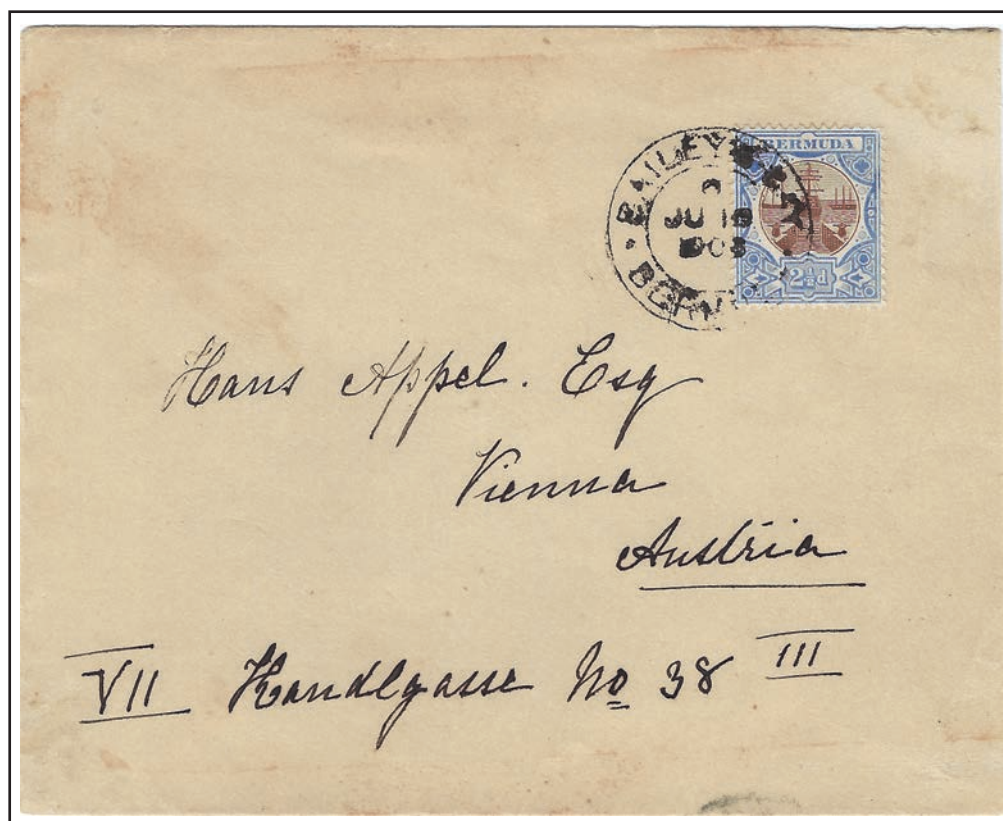 BERMUDA
BAILEY'S BAY
JU 18
1908
BERMUDA
2½d
Hans Appel. Esq
Vienna
Austria
VII Kandlgasse No 38 III